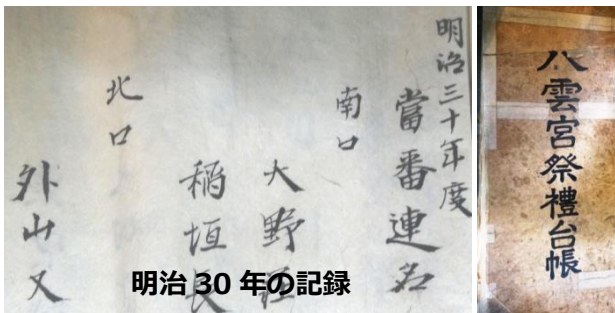 明治三十年度
當番連名
南口
大野
稲垣長
北口
外山又
明治 30 年の記録
八雲宮祭禮台帳